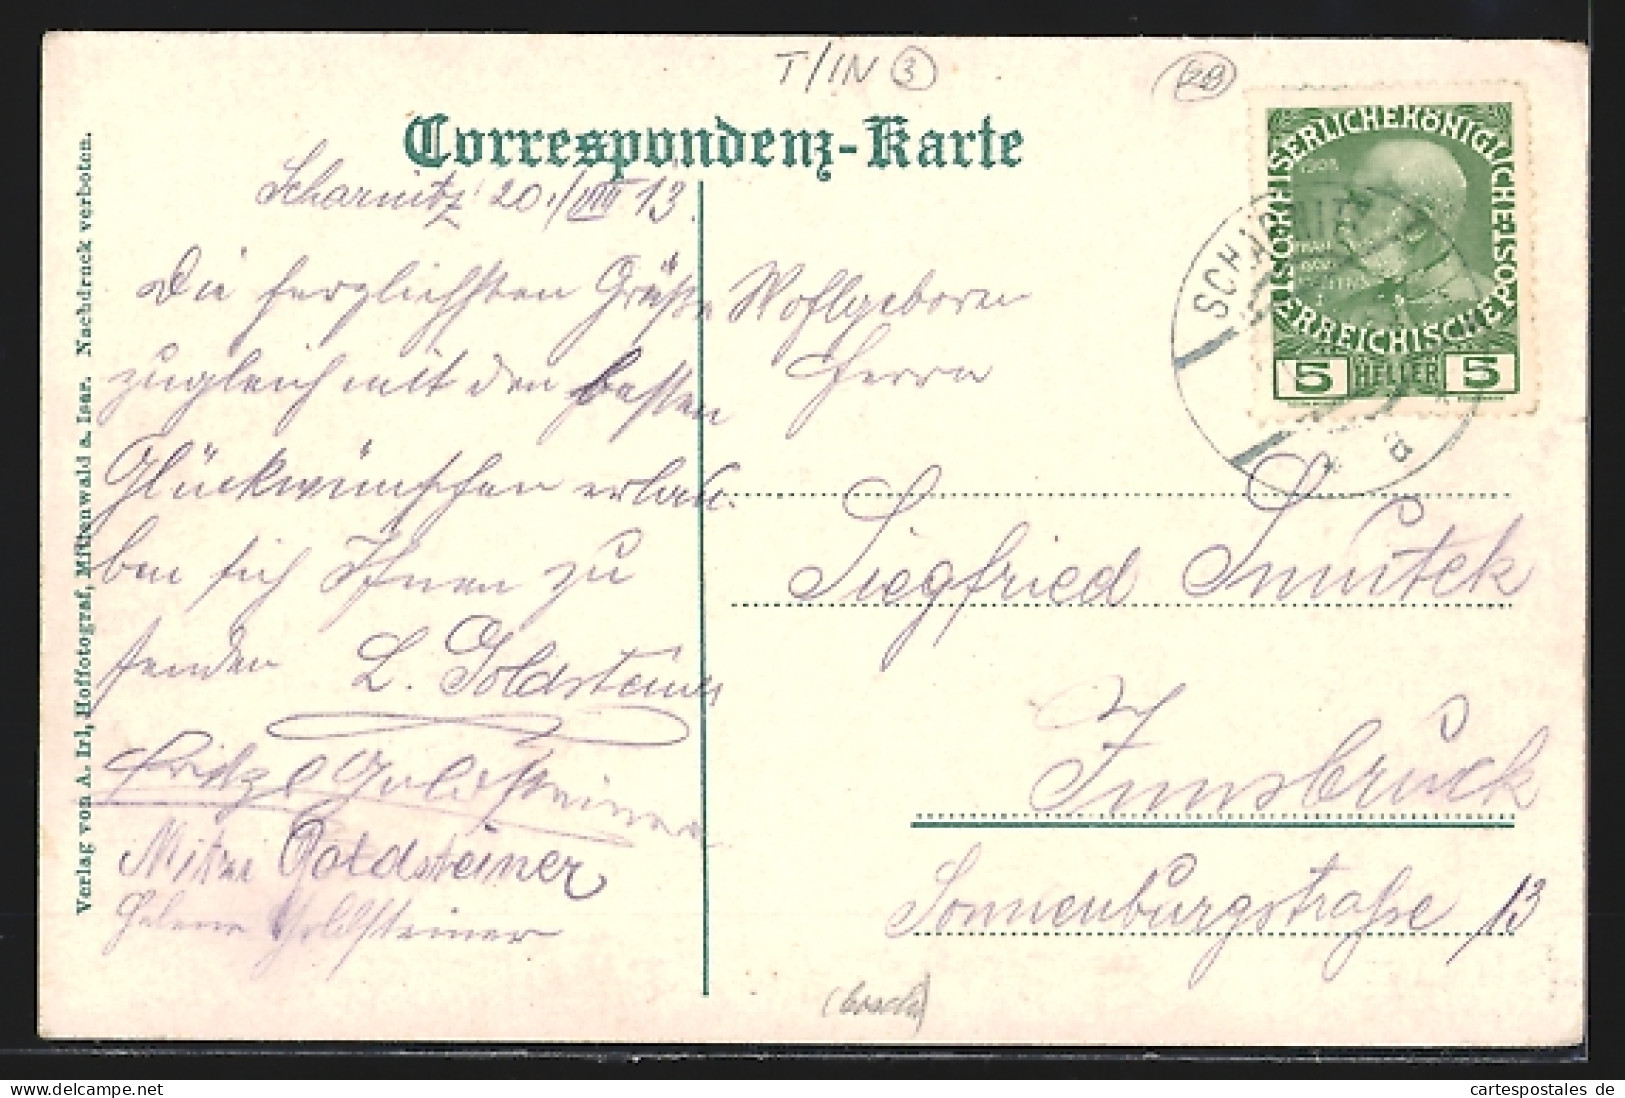 T/IN 3
Correspondenz-Karte
Scharnitz 20./VIII 13.
Die herzlichsten Grüße
zugleich mit den besten
Glückwünschen erlau-
ben sich Ihnen zu
senden L. Goldsteiner
Fritzl Goldsteiner
Mitzi Goldsteiner
Helene Goldsteiner
Wohlgeborn
Herrn
Siegfried Smutek
Innsbruck
Sonnenburgstraße 13
KAISERLICHEKÖNIGLICHE
ÖSTERREICHISCHE POST
1908
5 HELLER 5
SCHARNITZ
a
Verlag von A. Irl, Hoffotograf, Mittenwald a. Isar. Nachdruck verboten.
cartespostales de